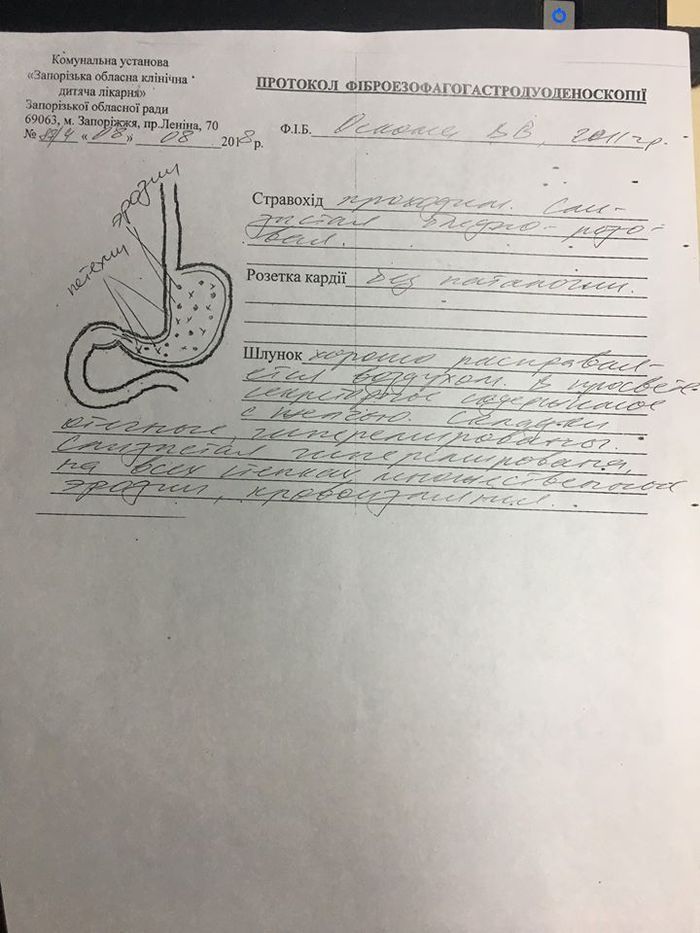 Комунальна установа
«Запорізька обласна клінічна
дитяча лікарня»
Запорізької обласної ради
69063, м. Запоріжжя, пр.Леніна, 70
№ «08» 08 2018 р.
ПРОТОКОЛ ФІБРОЕЗОФАГОГАСТРОДУОДЕНОСКОПІЇ
Ф.І.Б. В В, 2011 г.р.
эрозии
петехии
Стравохід проходим. Сли-
зистая бледно-розо-
вая.
Розетка кардії без патологии.
Шлунок хорошо расправля-
ется воздухом. В просвете
секреторное содержимое
с желчью. Складки
отечные, гиперемированы.
Слизистая гиперемирована,
на всех стенках множественные
эрозии, кровоизлияния.